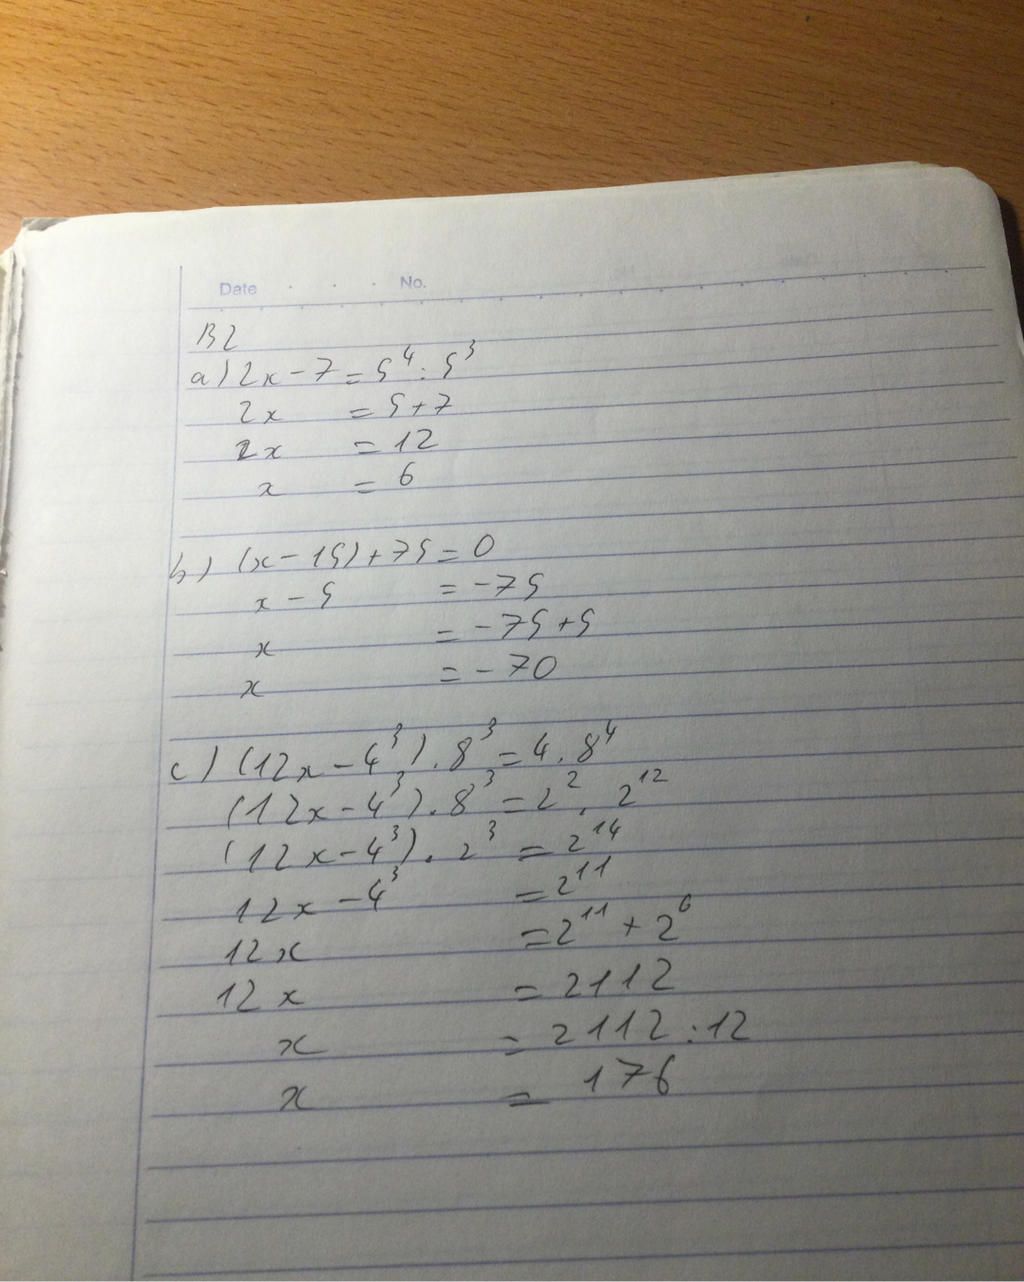 Date . . . No.
B2
a) 2x - 7 = 5⁴ : 5³
2x = 5 + 7
2x = 12
x = 6
b) (x - 15) + 75 = 0
x - 5 = -75
x = -75 + 5
x = -70
c) (12x - 4³) . 8³ = 4 . 8⁴
(12x - 4³) . 8³ = 2² . 2¹²
(12x - 4³) . 2³ = 2¹⁴
12x - 4³ = 2¹¹
12x = 2¹¹ + 2⁶
12x = 2112
x = 2112 : 12
x = 176